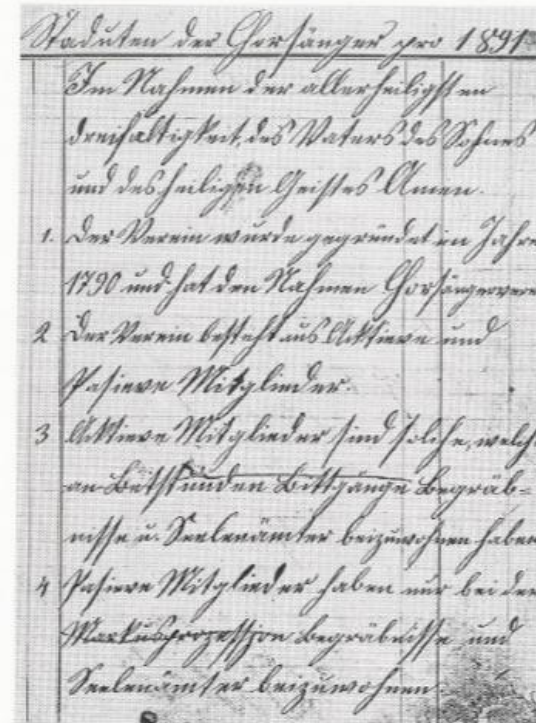 Staduten der Chorsänger pro 1891
Im Nahmen der allerheiligsten
dreifaltigkeit, des Vaters des Sohnes
und des heiligen Geistes Amen.
1. Der Verein wurde gegründet im Jahre
1790 und hat den Nahmen Chorsängerverein
2 Der Verein besteht aus Acktieve und
Pasieve Mitglieder.
3 Acktieve Mitglieder sind solche, welche
an Betstunden Bittgänge Begräb=
nisse u. Seelenämter beizuwohnen haben
4 Pasieve Mitglieder haben nur bei der
Markusprozession Begräbnisse und
Seelenämter beizuwohnen.